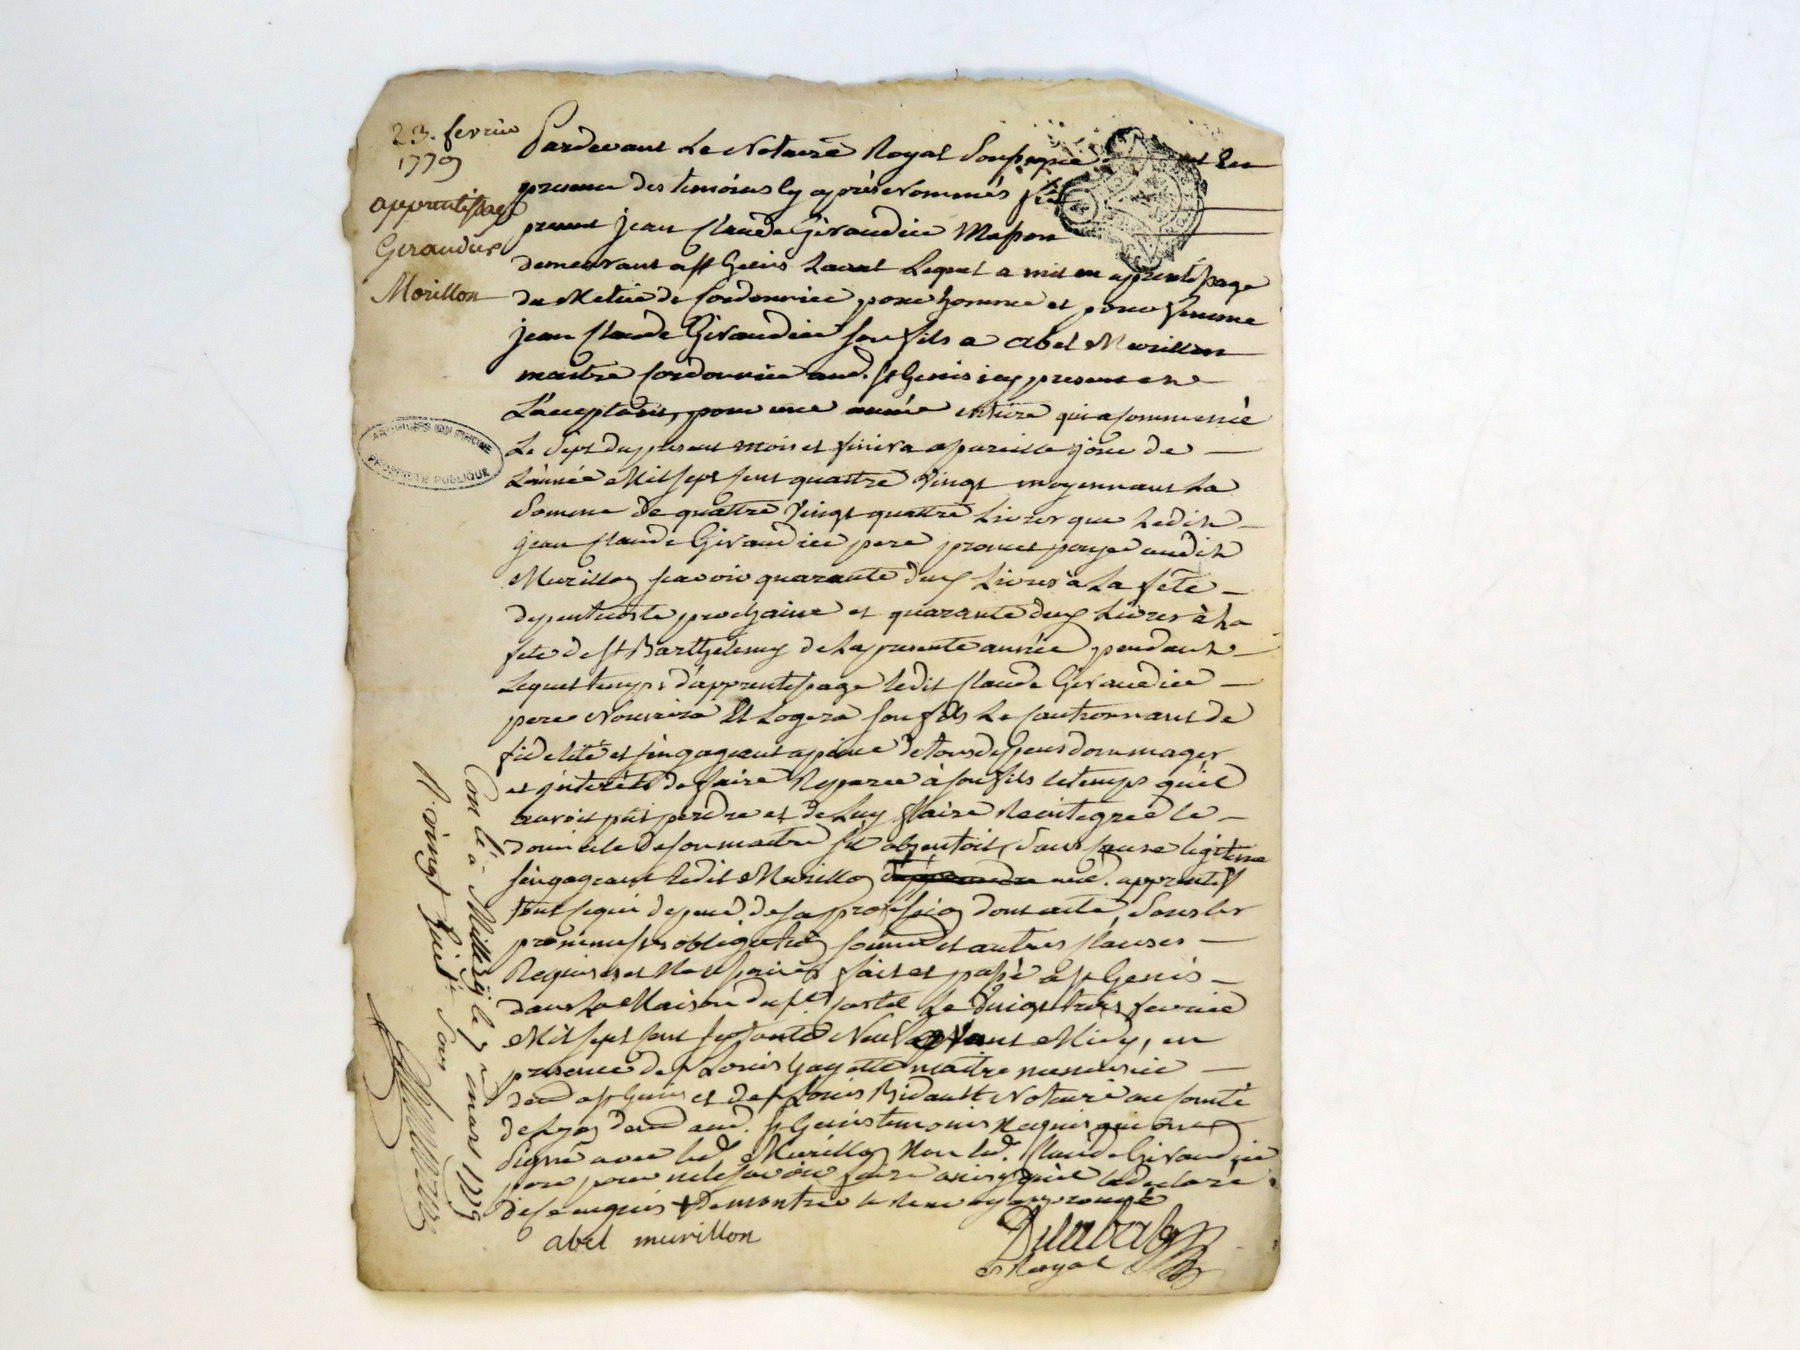 23. fevrier
1779
apprentissage
Giraudier
Morillon
Pardevant Le Notaire Royal Soussigné et En
presence des temoins cy après Nommés fut
present jean Claude Giraudier Masson
demeurant a st Genis Laval Lequel a mis en apprentissage
du Metier de Cordonnier pour homme et pour femme
jean Claude Giraudier son fils a abel Murillon
maitre Cordonnier aud. st Genis icy present et
L'acceptant, pour une année entiere qui a Commencé
Le Sept du present mois et finira a pareille jour de
L'année Mil sept cent quattre vingt moyennant La
Somme de quattre vingt quattre Livres que Ledit
jean Claude Giraudier pere promet payer audit
Murillon scavoir quarante deux Livres a La fete
de pentecoste prochaine et quarante deux Livres à La
fete de st Barthelemy de La presente année pendant
Lequel temps d'apprentissage ledit Claude Giraudier
pere Nourrira Et Logera son fils Le Cautionnant de
fidelité et s'engageant a peine de tous depens dommages
et jnterêts de faire Reparer à son fils le temps qu'il
auroit put perdre et de Luy faire Reintegrer le
domicile de son maitre s'il absentoit, sans cause legitime
s'engageant Ledit Murillon d'apprendre aud. apprentif
tout ce qui depend de sa profession dont acte, Sous les
promesses obligations soumis et autres clauses
Requises et Necessaires fait et passé a st Genis
dans La Maison du sr Le vingt trois fevrier
Mil sept cent septante Neuf avant Midy, en
presence de sr Louis Gayette maitre menuisier
dem a st Genis et de sr Louis Bidault Notaire au Comté
de Lyon dem aud. st Genis temoins Requis qui ont
Signé avec led. Murillon Non led. Claude Giraudier
pere pour ne le scavoir faire ainsy qu'il La declaré
de ce enquis + demontrer le renvoy approuvé
abel murillon
Royal
Con lé à Millery le 7 mars 1779
R. vingt huit s. Sous
ARCHIVES DU RHONE
PROPRIETE PUBLIQUE